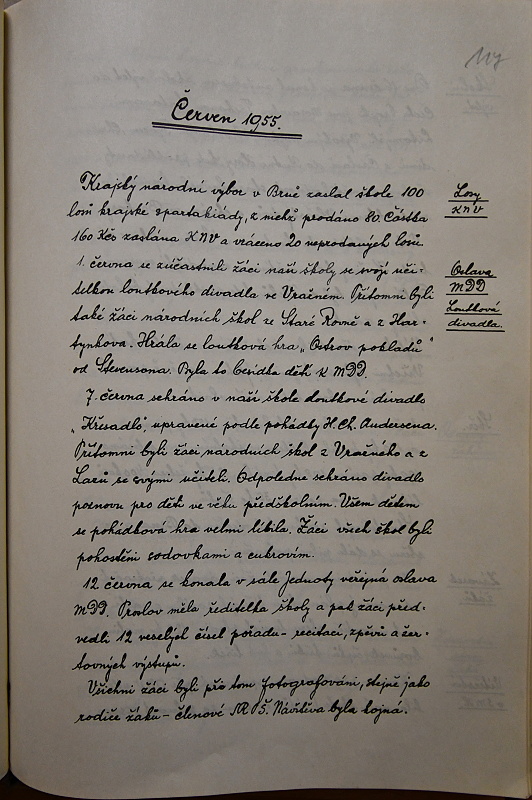 117
Červen 1955.
Krajský národní výbor v Brně zaslal škole 100
losů krajské spartakiády, z nichž prodáno 80. Částka
160 Kčs zaslána KNV a vráceno 20 neprodaných losů.
Losy
KNV
1. června se zúčastnili žáci naší školy se svojí uči-
telkou loutkového divadla ve Vračném. Přítomni byli
také žáci národních škol ze Staré Rovně a z Har-
tynkova. Hrála se loutková hra „Ostrov pokladů"
od Stevensona. Byla to besídka dětí k MDD.
Oslava
MDD
Loutková
divadla.
7. června sehráno v naší škole loutkové divadlo
„Křesadlo", upravené podle pohádky H. Ch. Andersena.
Přítomni byli žáci národních škol z Vračného a z
Lazů se svými učiteli. Odpoledne sehráno divadlo
poznovu pro děti ve věku předškolním. Všem dětem
se pohádková hra velmi líbila. Žáci všech škol byli
pohoštěni sodovkami a cukrovím.
12. června se konala v sále Jednoty veřejná oslava
MDD. Proslov měla ředitelka školy a pak žáci před-
vedli 12 veselých čísel pořadu - recitací, zpěvů a žer-
tovných výstupů.
Všichni žáci byli při tom fotografováni, stejně jako
rodiče žáků - členové SRPŠ. Návštěva byla hojná.